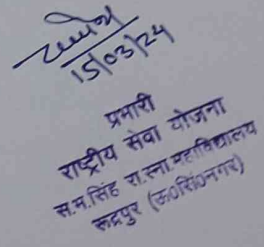 15/03/24
प्रभारी
राष्ट्रीय सेवा योजना
स.भ.सिंह रा.स्ना.महाविद्यालय
रूद्रपुर (ऊ०सिं०नगर)